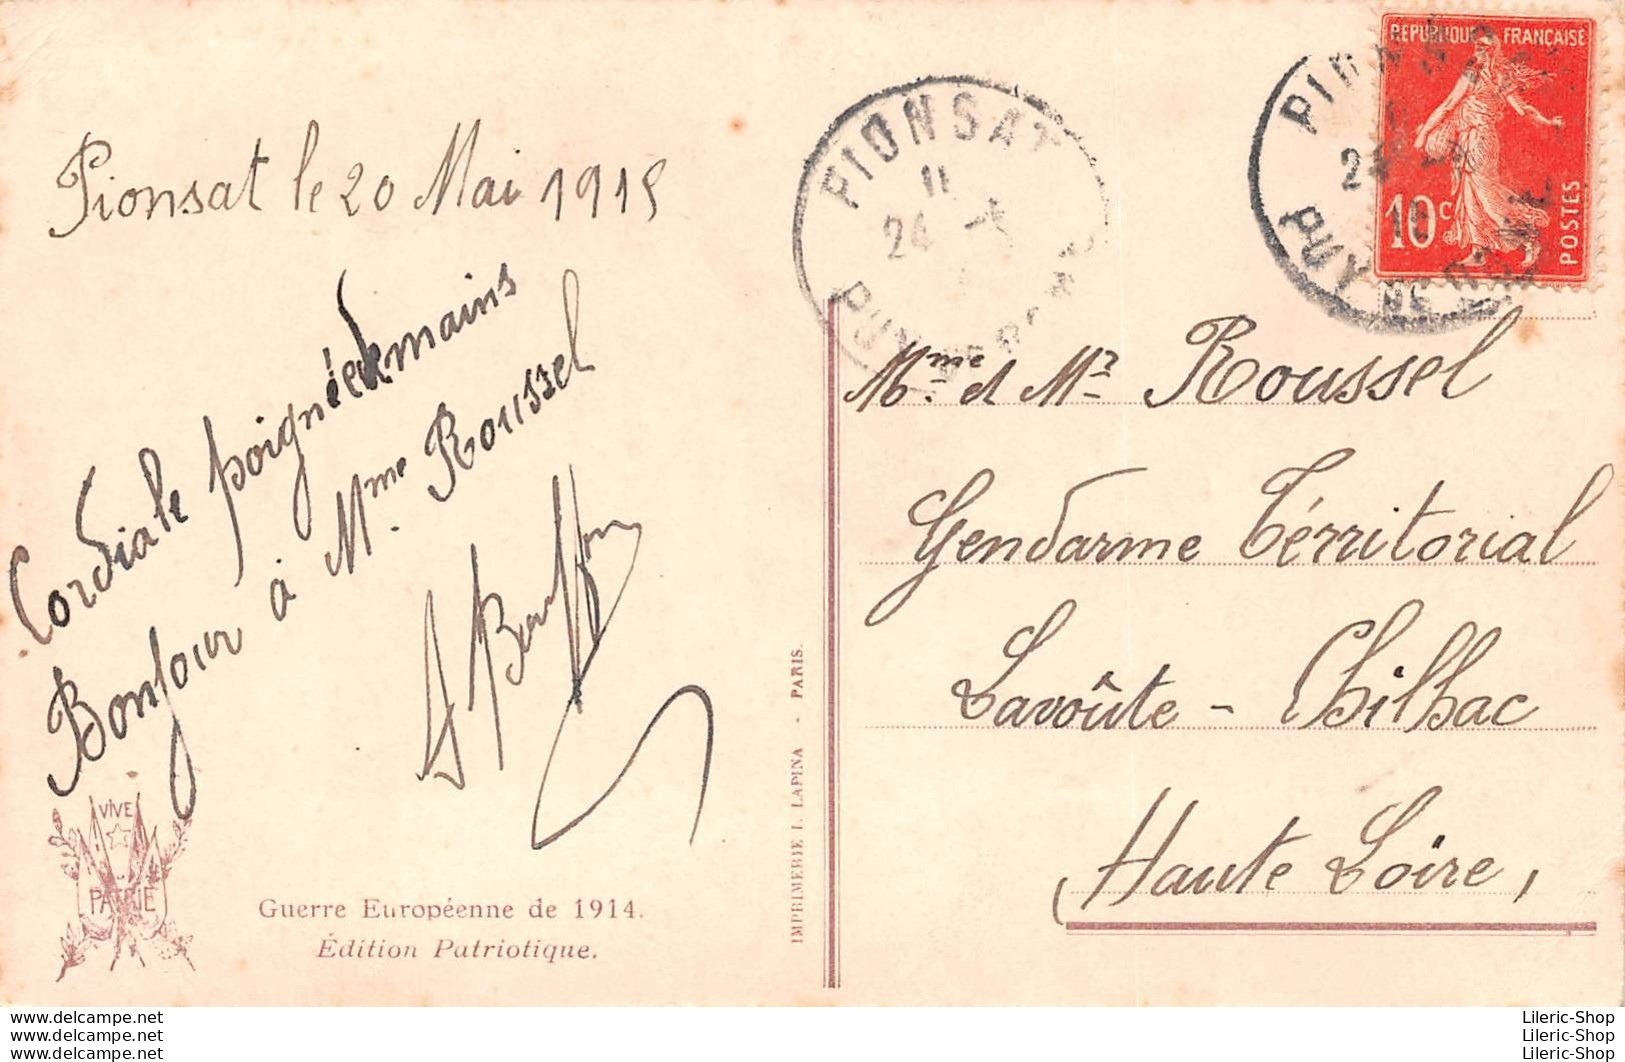 Pionsat le 20 Mai 1915
Cordiale poignée de mains
Bonjour à Mme Roussel
VIVE
PATRIE
Guerre Européenne de 1914.
Édition Patriotique.
IMPRIMERIE I. LAPINA - PARIS.
PIONSAT
11
24
PUY DE DOME
PIONSAT
24
PUY DE DOME
REPUBLIQUE FRANÇAISE
10c
POSTES
Mme et Mr Roussel
Gendarme Térritorial
Lavoûte - Chilhac
Haute Loire,
www.delcampe.net
www.delcampe.net
www.delcampe.net
Lileric-Shop
Lileric-Shop
Lileric-Shop